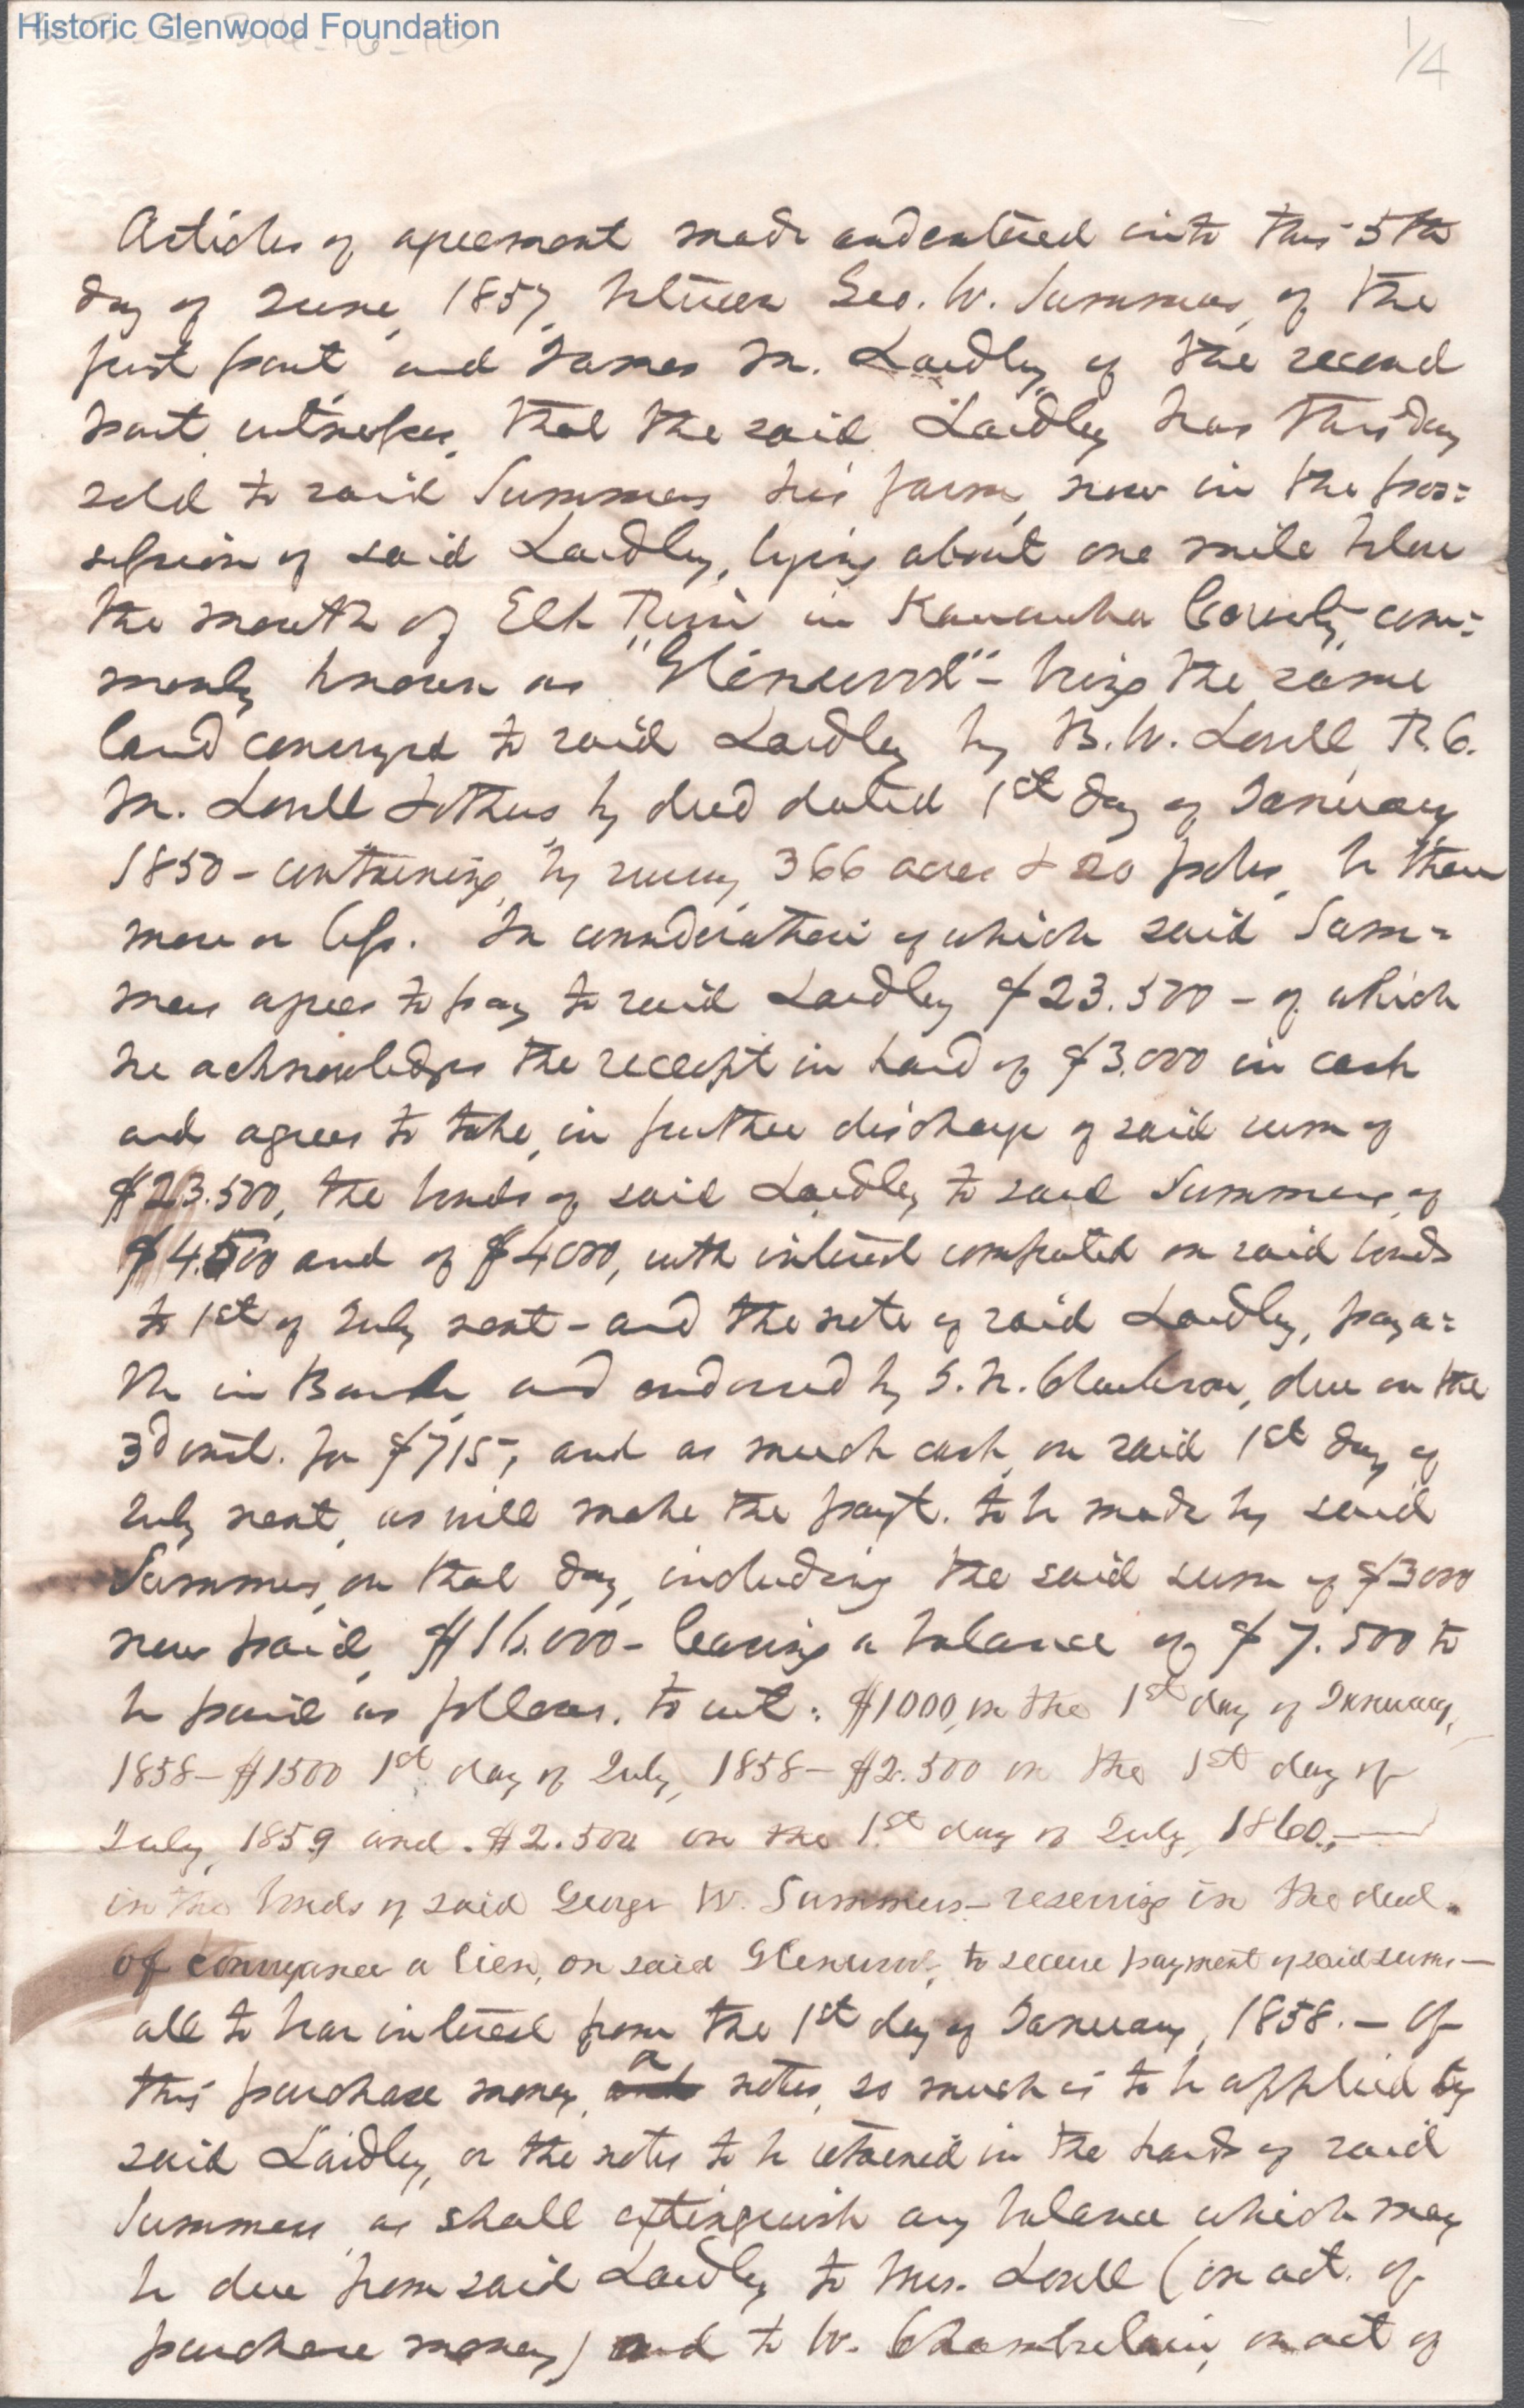 Historic Glenwood Foundation
1/4
Articles of agreement made and entered into this 5th
day of June, 1857, between Geo. W. Summers, of the
first part, and James M. Laidley, of the second
part, witnesses, that the said Laidley has this day
sold to said Summers his farm, now in the pos=
session of said Laidley, lying about one mile below
the mouth of Elk River in Kanawha County, com=
monly known as "Glenwood" – being the same
land conveyed to said Laidley by B. W. Lovell, R. C.
M. Lovell & others, by deed dated 1st day of January
1850 – containing, by survey, 366 acres & 20 poles, be there
more or less. In consideration of which said Sum=
mers agrees to pay to said Laidley $23.500 – of which
he acknowledges the receipt in hand of $3.000 in cash
and agrees to take, in further discharge of said sum of
$23.500, the bonds of said Laidley to said Summers, of
$4.500 and of $4000, with interest computed on said bonds
to 1st of July next – and the note of said Laidley, paya=
ble in Bank, and endorsed by S. N. Clarkson, due on the
3d inst. for $715, and as much cash, on said 1st day of
July next, as will make the payt. to be made by said
Summers, on that day, including the said sum of $3000
now paid, $16.000 – leaving a balance of $7.500 to
be paid as follows, to wit: $1000, on the 1st day of January,
1858 – $1500 1st day of July, 1858 – $2.500 on the 1st day of
July, 1859 and $2.500 on the 1st day of July, 1860, —
in the bonds of said George W. Summers – reserving in the deed
of conveyance a lien, on said Glenwood, to secure payment of said sums —
all to bear interest from the 1st day of January, 1858. – Of
this purchase money, or notes, so much is to be applied by
said Laidley, or the notes to be retained in the hands of said
Summers, as shall extinguish any balance which may
be due from said Laidley to Mrs. Lovell (on act. of
purchase money) and to W. Chamberlain, on act of